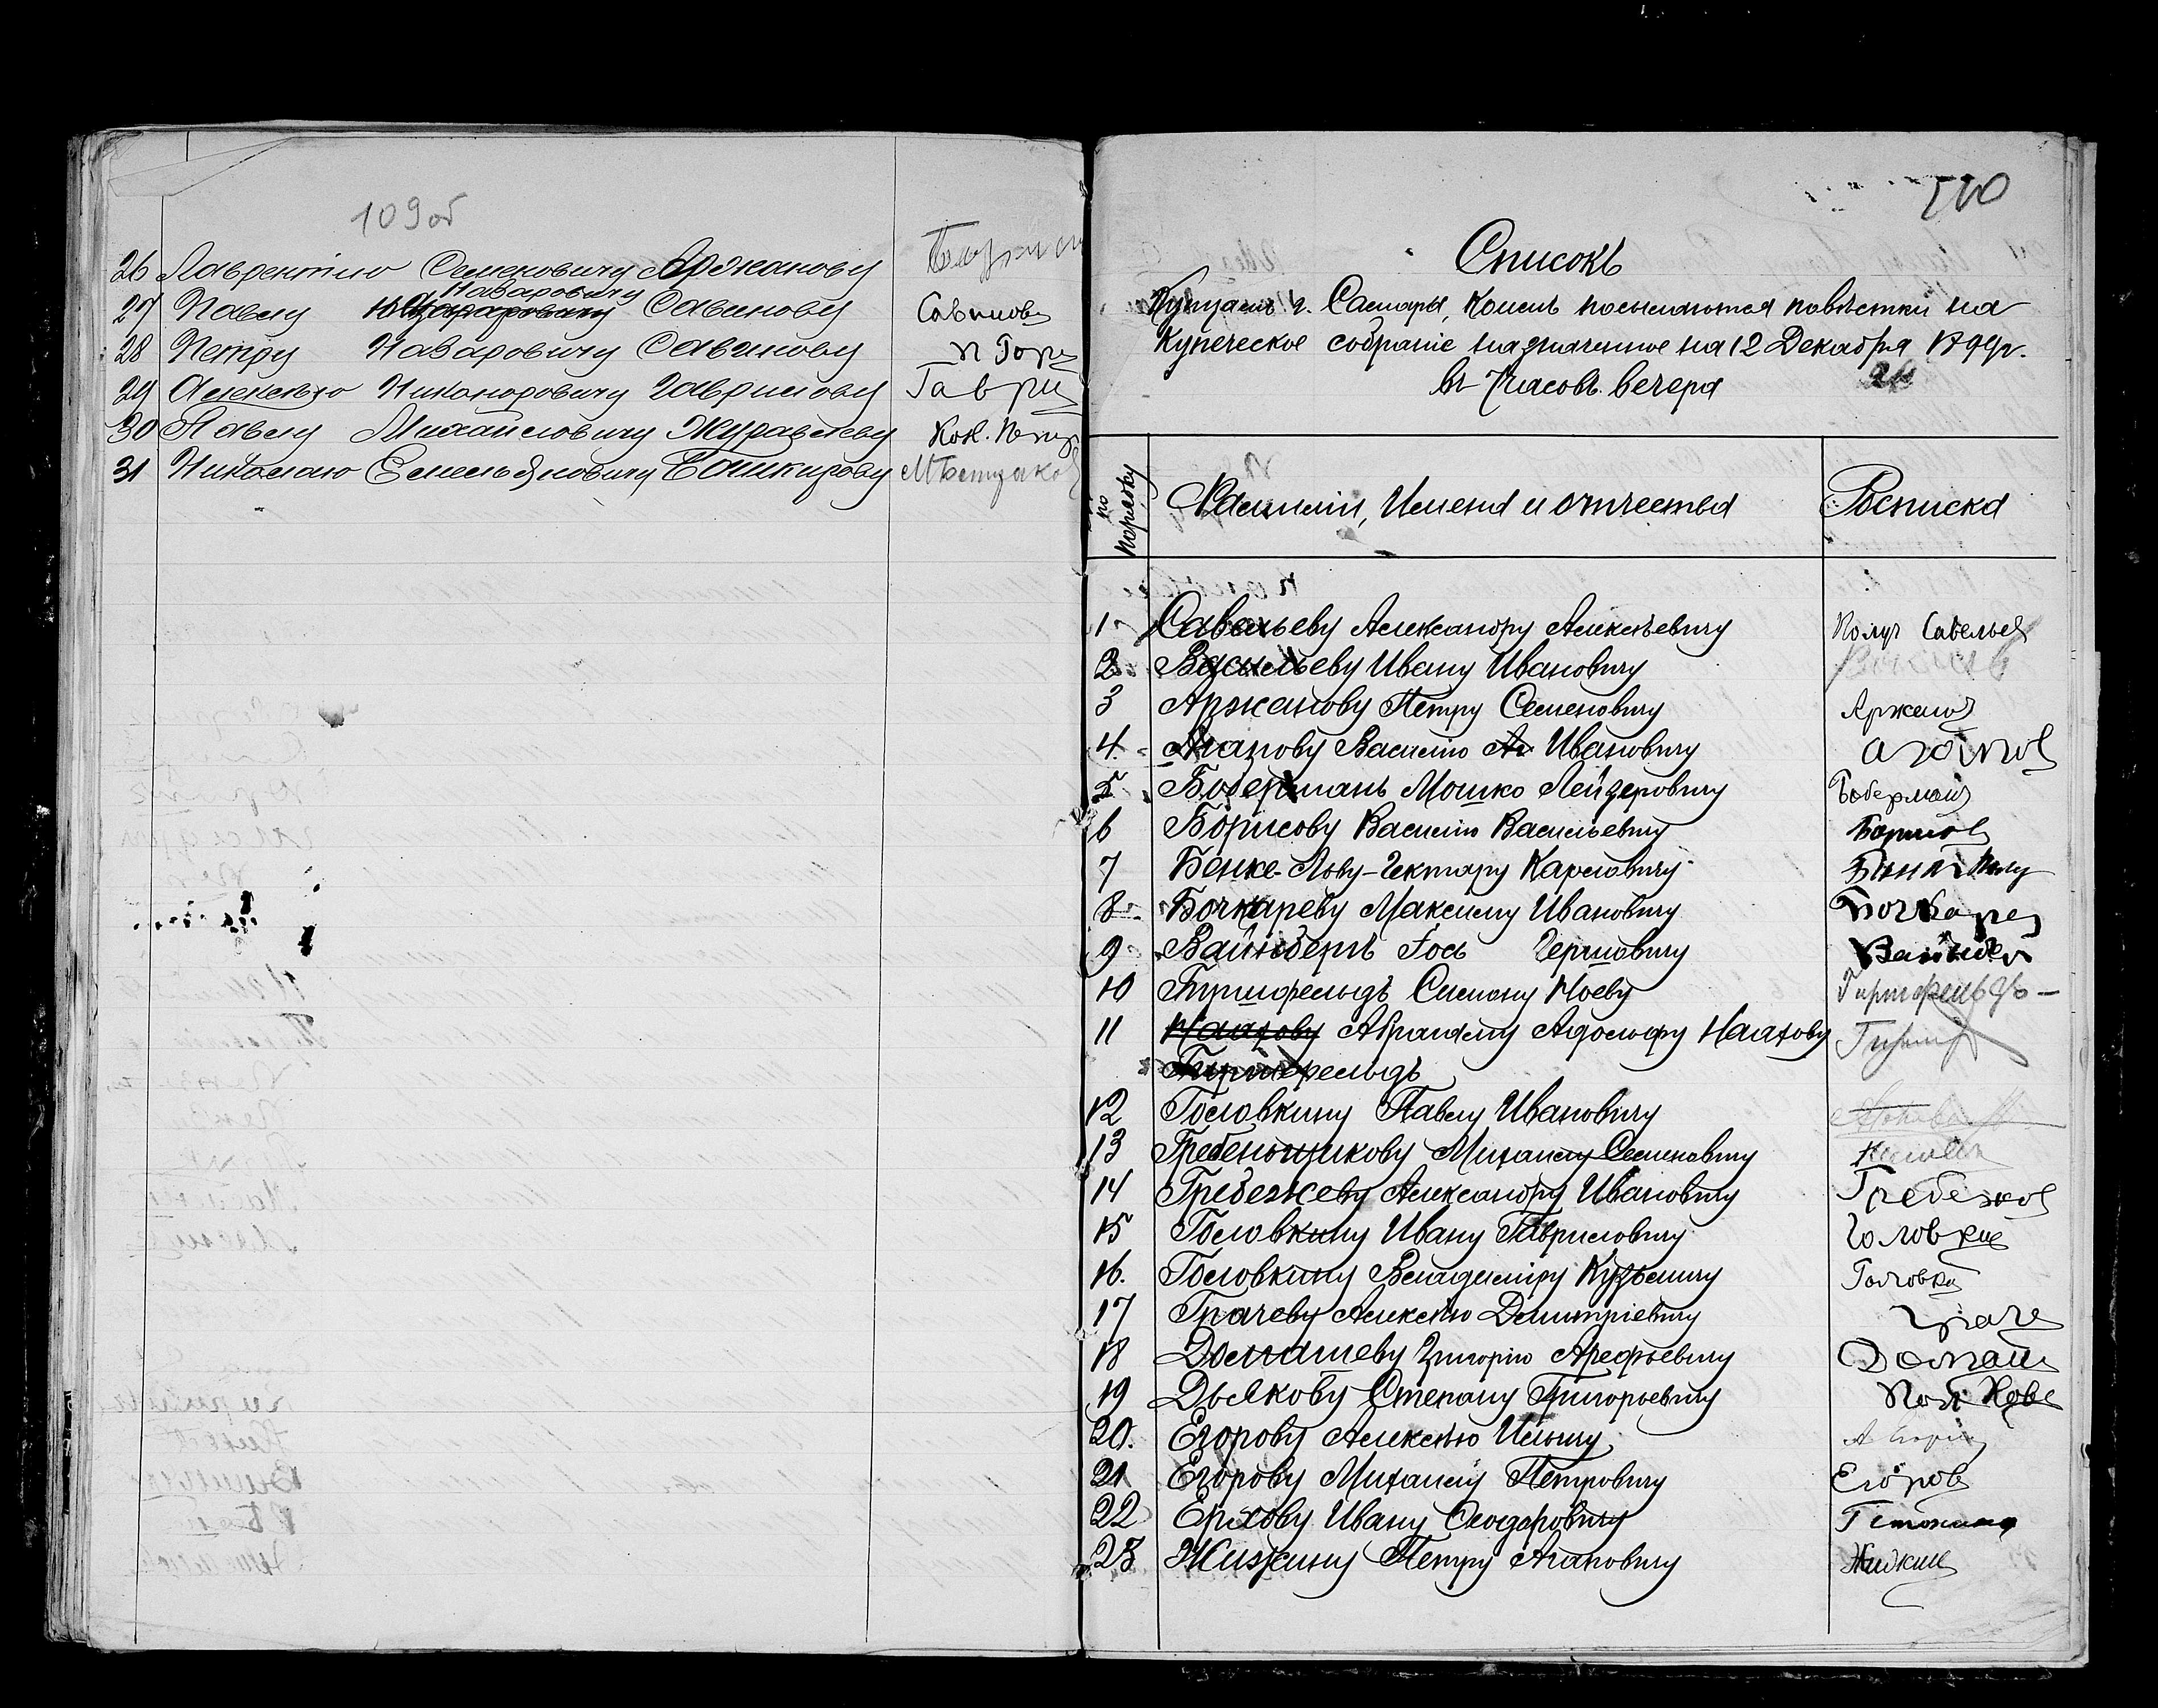 109об
26 Лаврентию Семеновичу Аржанову
Назаровичу
27 Павлу Савинову Савинов
28 Петру Назаровичу Савинову
29 Алексею Никаноровичу Гаврилову Гаври
30 Павлу Михайловичу Журавлеву
31 Николаю Емельяновичу Башкирову
110
Списокъ
Купцамъ г. Самары, коимъ посылаются повѣстки на
Купеческое собраніе назначенное на 12 Декабря 1899г.
въ 7 часовъ вечера
по порядку Фамиліи, Имена и отчества Росписка
1 Савельеву Александру Алексѣевичу Получ Савельев
2 Васильеву Ивану Ивановичу
3 Аржанову Петру Семеновичу Аржанов
4. Агапову Василію Ивановичу Агапов
5 Боберманъ Мошко Лейзеровичу Боберман
6 Борисову Василію Васильевичу Борисов
7 Бенке Лову-Гектару Карловичу
8. Бочкареву Максиму Ивановичу Бочкаре
9 Вайнбергъ Іось Гершовичу
10 Гиршфельдъ Симону Ноеву Гиршфельдъ
11 Наахову Абрагаму Адольфу Наахову
Гиршфельдъ
12 Головкину Павлу Ивановичу
13 Гребенщикову Михаилу Семеновичу
14 Гребежеву Александру Ивановичу Гребежов
15 Головкину Ивану Гавриловичу Головкин
16. Головкину Владиміру Кузьмичу Головки
17 Грачеву Алексѣю Дмитріевичу Граче
18 Домашеву Григорію Арефьевичу Домаш
19 Дьякову Степану Григорьевичу
20. Егорову Алексѣю Ильичу
21 Егорову Михаилу Петровичу Егоров
22 Ерехову Ивану Феодоровичу
23 Жидкину Петру Агаповичу Жидкин